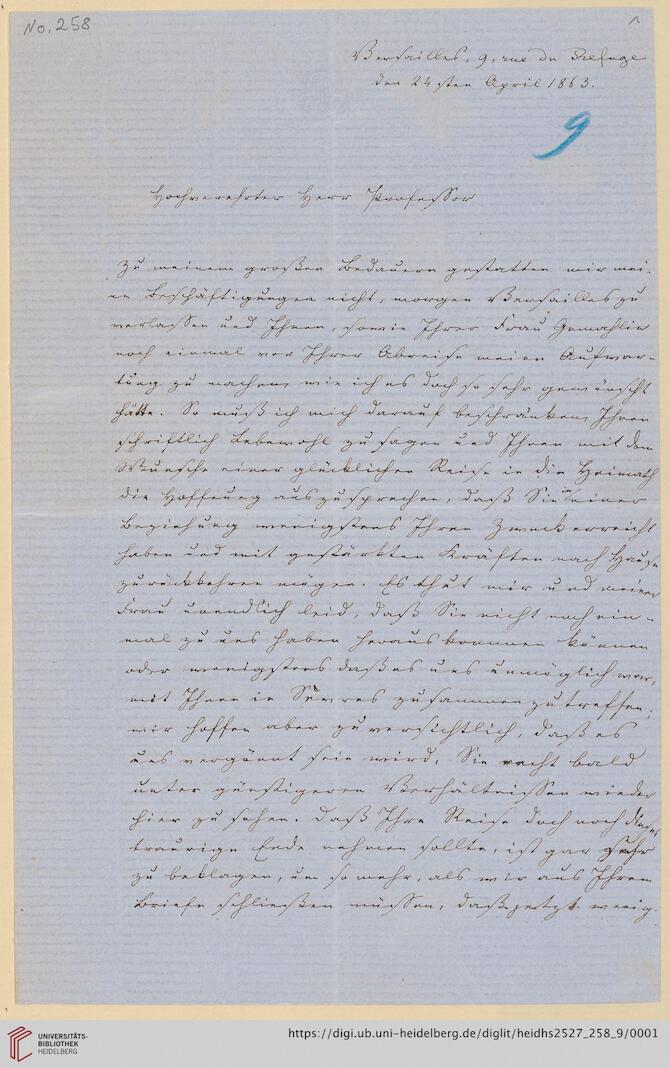 No. 258
Versailles, 9, rue du Refuge
den 24sten April 1863.
9
Hochverehrter Herr Professor
Zu meinem großen Bedauern gestatten mir mei-
ne Beschäftigungen nicht, morgen Versailles zu
verlassen und Ihnen, sowie Ihrer Frau Gemahlin
noch einmal vor Ihrer Abreise meine Aufwar-
tung zu machen, wie ich es doch so sehr gewünscht
hätte. So muß ich mich darauf beschränken, Ihnen
schriftlich Lebewohl zu sagen und Ihnen mit dem
Wunsche einer glücklichen Reise in die Heimath
die Hoffnung auszusprechen, daß Sie in einer
Beziehung wenigstens Ihren Zweck erreicht
haben und mit gestärkten Kräften nach Hause
zurückkehren mögen. Es thut mir und meiner
Frau unendlich leid, daß Sie nicht noch ein-
mal zu uns haben herauskommen können
oder wenigstens daß es uns unmöglich war,
mit Ihnen in Sèvres zusammenzutreffen;
wir hoffen aber zuversichtlich, daß es
uns vergönnt sein wird, Sie recht bald
unter günstigeren Verhältnissen wieder
hier zu sehen. Daß Ihre Reise doch noch dieses
traurige Ende nehmen sollte, ist gar sehr
zu beklagen, um so mehr, als wir aus Ihrem
Briefe schließen müssen, daß jetzt wenig
UNIVERSITÄTS-
BIBLIOTHEK
HEIDELBERG
https://digi.ub.uni-heidelberg.de/diglit/heidhs2527_258_9/0001